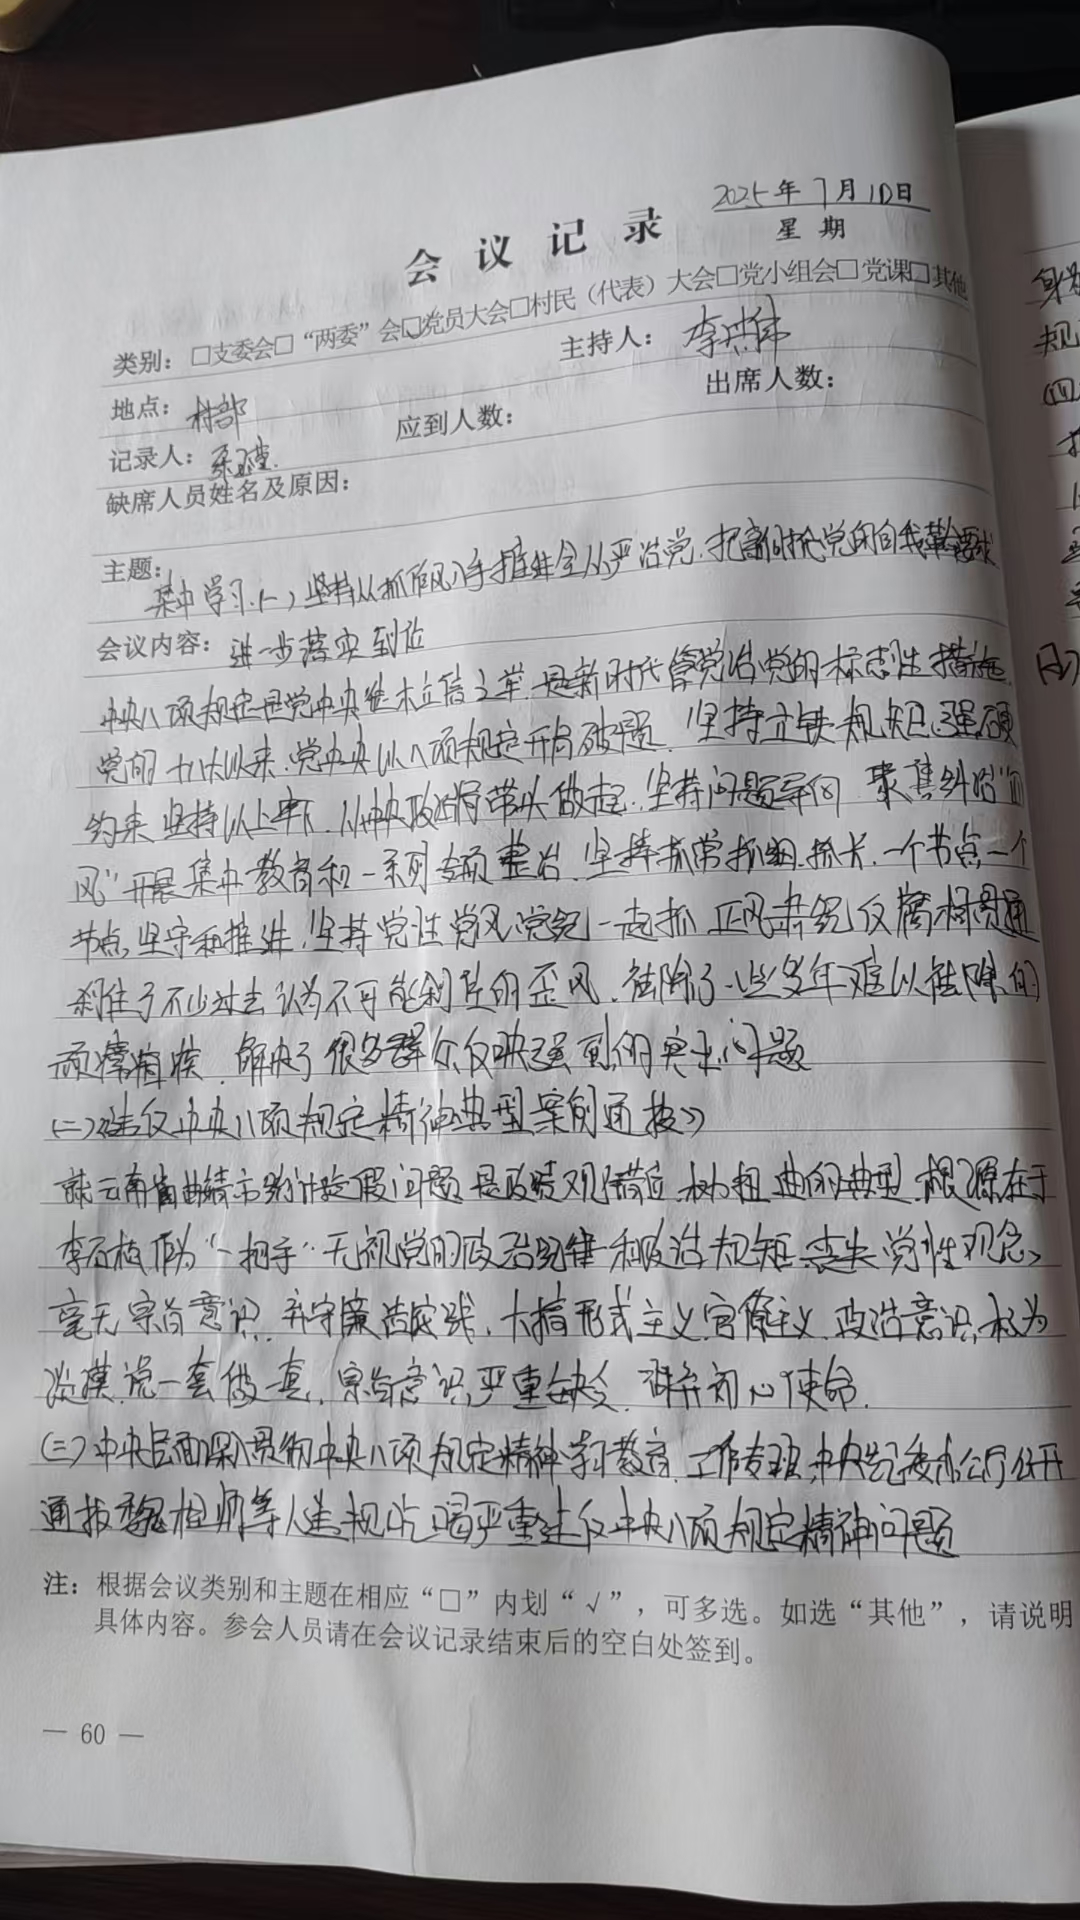 2025年7月10日
会议记录
星期
类别：□支委会□“两委”会☑党员大会□村民（代表）大会□党小组会□党课□其他
主持人：李洪伟
地点：村部
出席人数：
应到人数：
记录人：
缺席人员姓名及原因：
主题：
集中学习(一)坚持从抓作风入手推进全从严治党，把新时代党的自我革命要求
会议内容：进一步落实到位
中央八项规定是党中央徙木立信之举，是新时代管党治党的标志性措施。
党的十八大以来，党中央以八项规定开局破题，坚持立铁规矩、强硬
约束，坚持以上率下，从中央政治局带头做起，坚持问题导向，聚焦纠治“四
风”开展集中教育和一系列专项整治，坚持抓常抓细抓长，一个节点一个
节点，坚守和推进，坚持党性党风党纪一起抓，正风肃纪反腐相贯通
刹住了不少过去认为不可能刹住的歪风，祛除了一些多年难以祛除的
顽瘴痼疾，解决了很多群众反映强烈的突出问题
(二)违反中央八项规定精神典型案例通报》
就云南省曲靖市统计造假问题是政绩观错位、权力扭曲的典型，根源在于
李石松作为“一把手”无视党的政治纪律和政治规矩，丧失党性观念、
毫无宗旨意识，弃守廉洁底线，大搞形式主义、官僚主义，政治意识极为
淡漠，说一套做一套，宗旨意识严重缺失，背弃初心使命。
(三)中央层面深入贯彻中央八项规定精神学习教育，工作专班，中央纪委办公厅公开
通报魏相帅等人违规吃喝严重违反中央八项规定精神问题
注：根据会议类别和主题在相应“□”内划“√”，可多选。如选“其他”，请说明
具体内容。参会人员请在会议记录结束后的空白处签到。
— 60 —